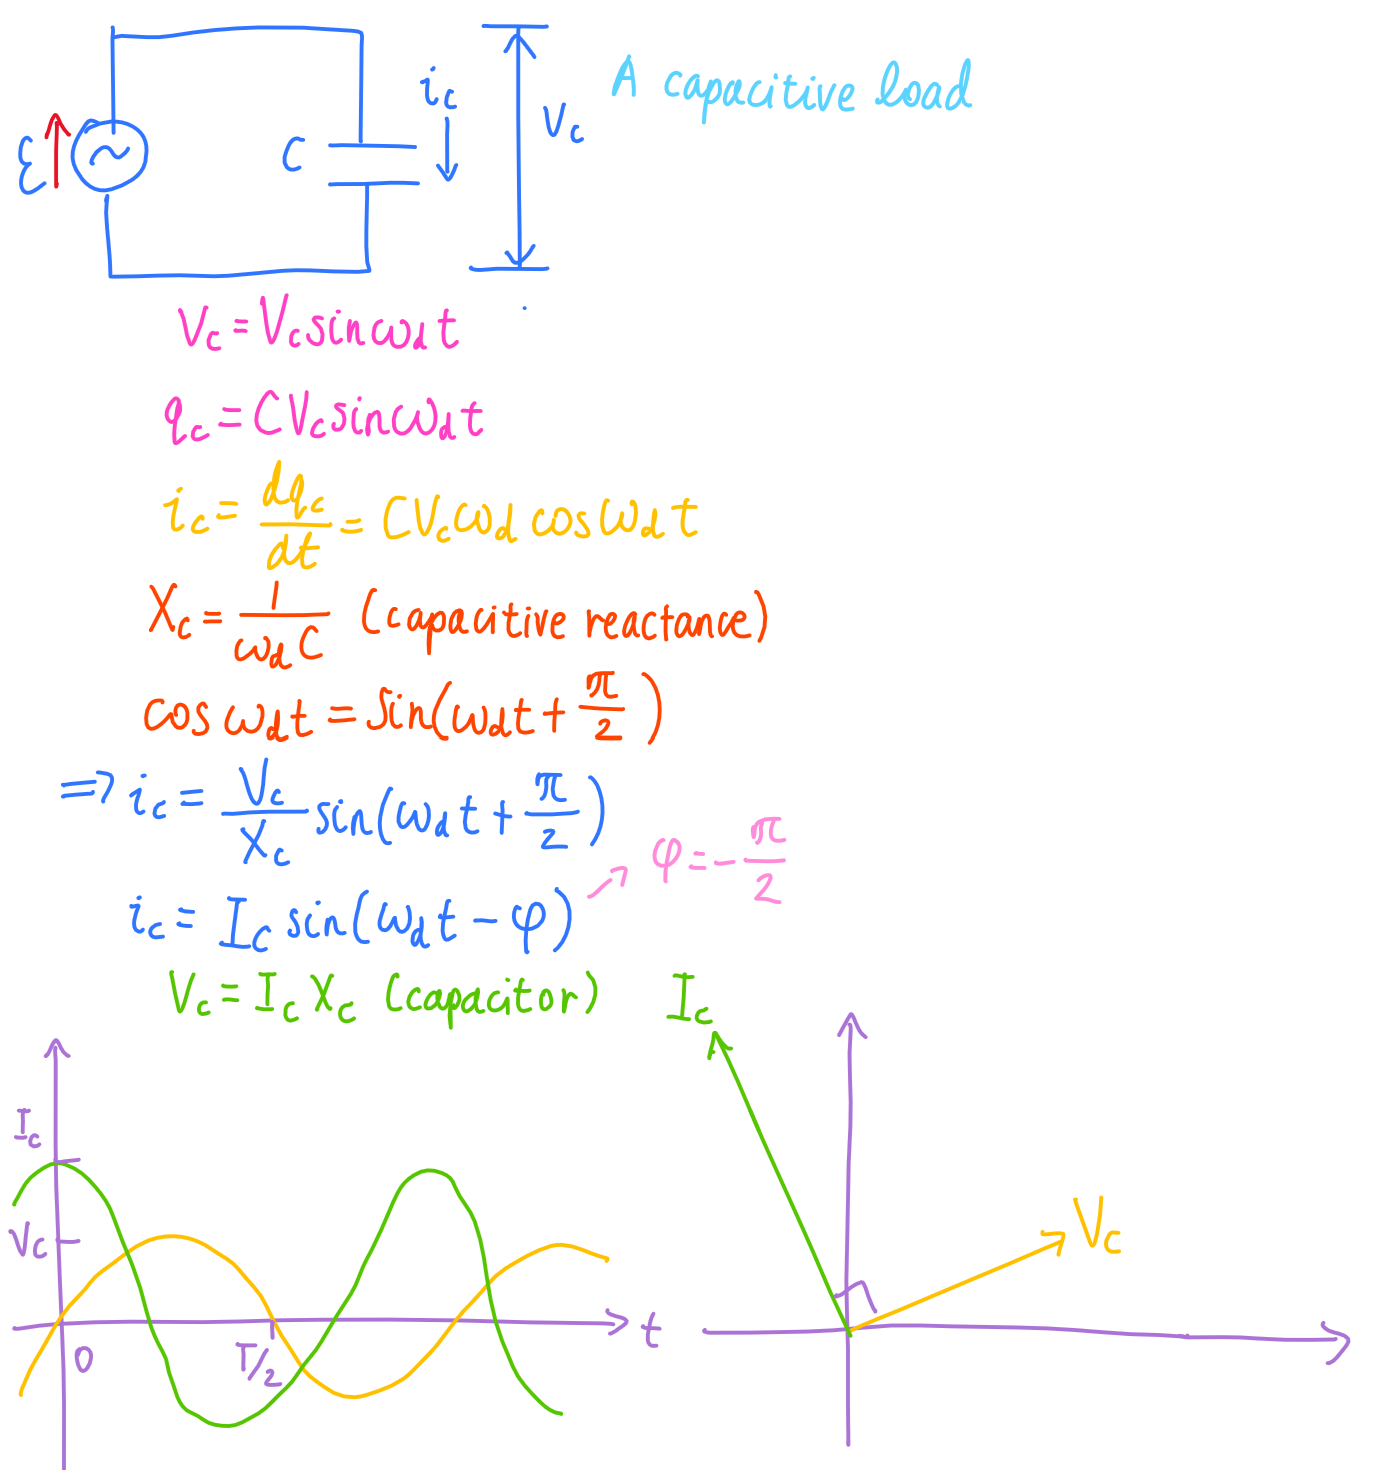 A capacitive load
ε
C
i_c
V_c
V_c = V_c sin ω_d t
q_c = CV_c sin ω_d t
i_c = dq_c/dt = CV_c ω_d cos ω_d t
X_c = 1/(ω_d C) (capacitive reactance)
cos ω_d t = sin(ω_d t + π/2)
⇒ i_c = V_c/X_c sin(ω_d t + π/2)
φ = -π/2
i_c = I_c sin(ω_d t - φ)
V_c = I_c X_c (capacitor)
I_c
V_c
0
T/2
t
I_c
V_c